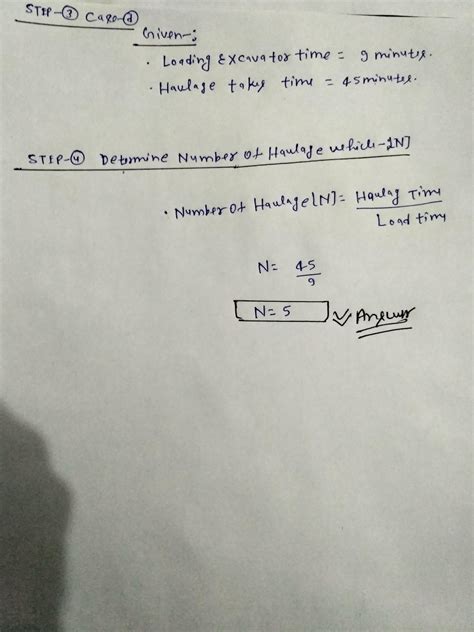 STEP-③ Case-d
Given-:
• Loading Excavator time = 9 minutes.
• Haulage takes time = 45 minutes.
STEP-④ Determine Number of Haulage which-[N]
• Number of Haulage [N] = Haulag Time
Load time
N = 45
9
N = 5 Answer